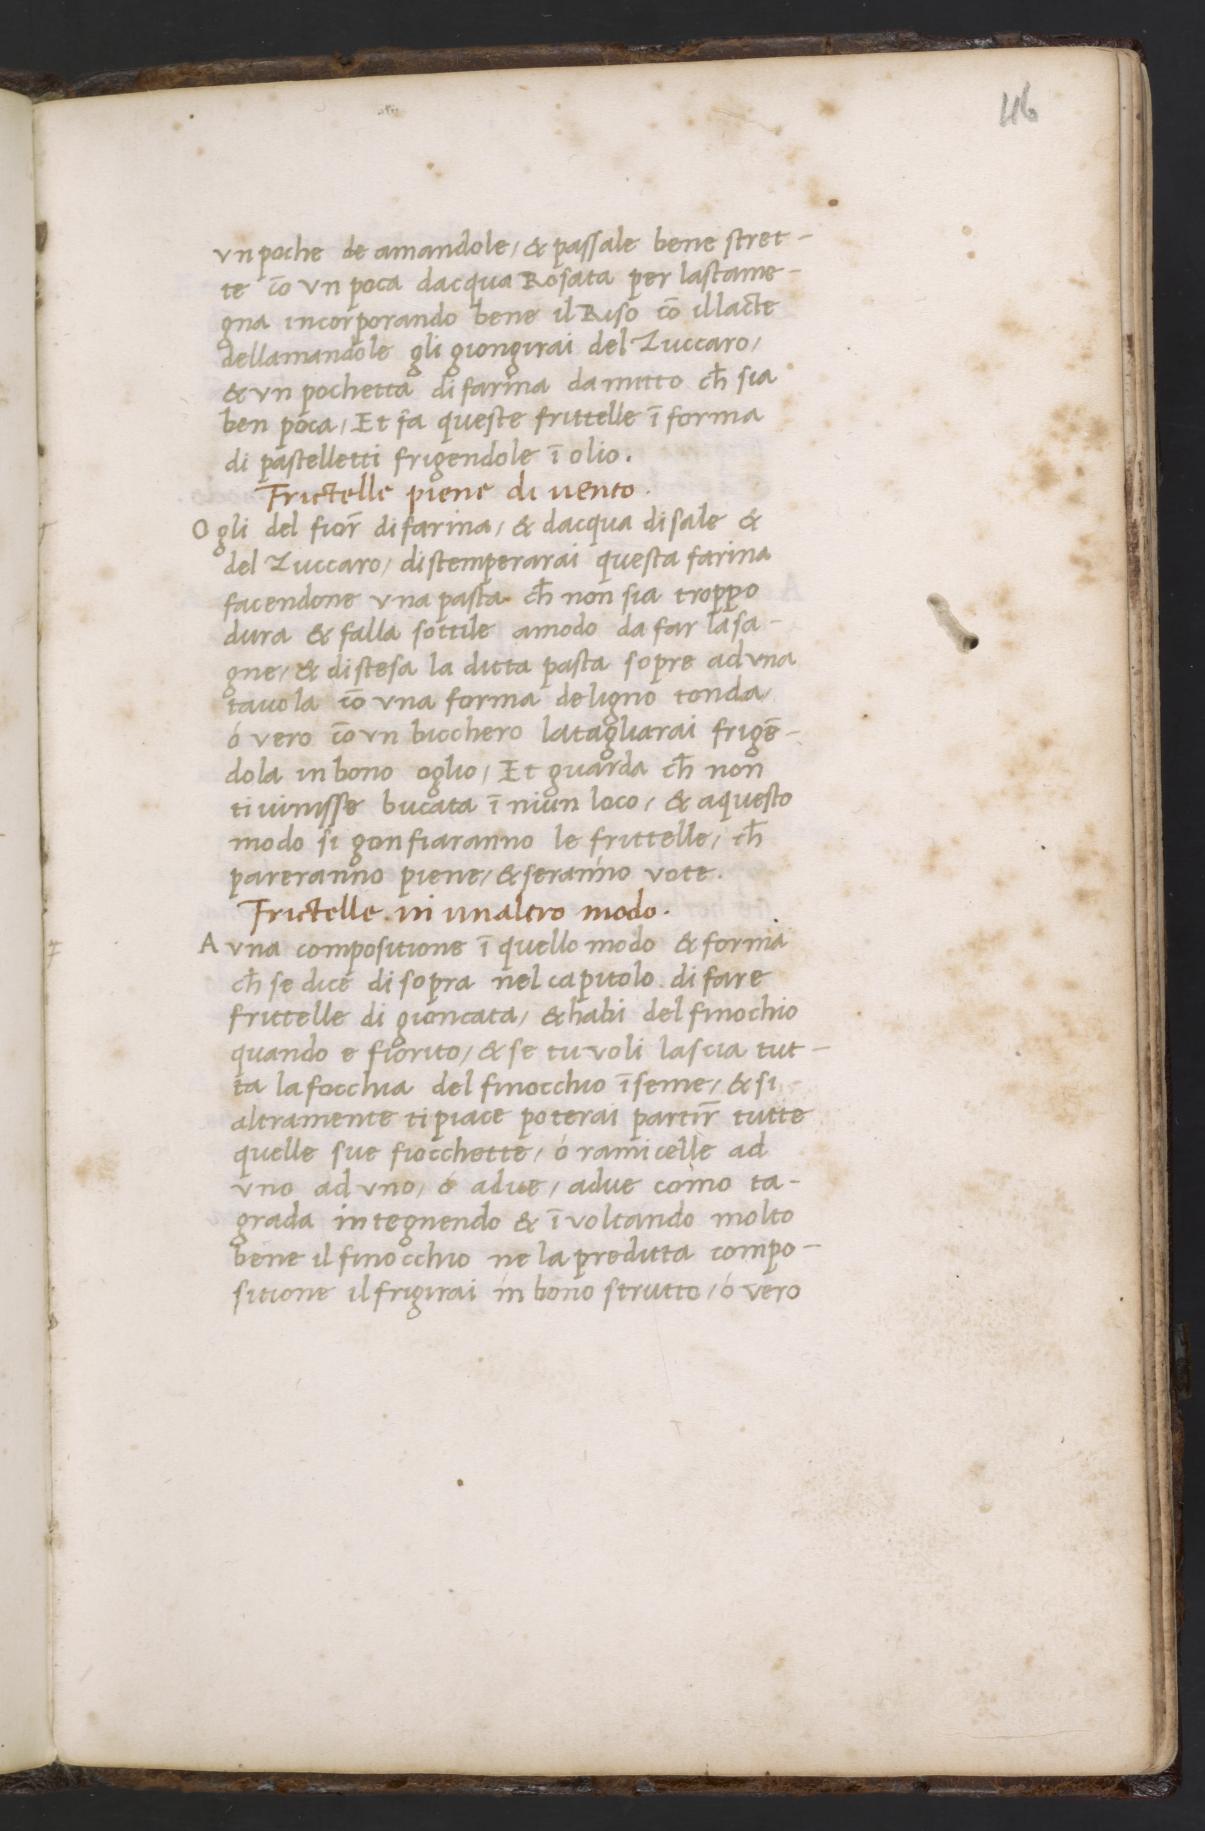 46
vn poche de amandole, & passale bene stret-
te cō vn poca dacqua Rosata per lastame-
gna incorporando bene il Riso cō il lacte
dellamandole gli giongirai del Zuccaro,
& vn pochetta di farina da mitto ch̄ sia
ben poca, Et fa queste frittelle ī forma
di pastelletti frigendole ī olio.
Frictelle piene di uento.
Ogli del fior̄ di farina, & dacqua di sale &
del Zuccaro, distemperarai questa farina
facendone vna pasta ch̄ non sia troppo
dura & falla sottile amodo da far lasa-
gne, & distesa la ditta pasta sopre ad vna
tauola cō vna forma de ligno tonda,
ó vero cō vn bicchero la tagliarai frigē-
dola in bono oglio, Et guarda ch̄ non
ti uinisse bucata ī niun loco, & aquesto
modo si gonfiaranno le frittelle, ch̄
pareranno piene, & seranno vote.
Frictelle in un altro modo.
A vna compositione ī quello modo & forma
ch̄ se dice di sopra nel capitolo di fare
frittelle di gioncata, & habi del finochio
quando e fiorito, & se tu voli lascia tut-
ta la focchia del finocchio īseme, & si
altramente ti piace poterai partir̄ tutte
quelle sue fiocchette, ó ramicelle ad
vno ad vno, ó adue, adue como ta-
grada integnendo & īvoltando molto
bene il finocchio ne la preditta compo-
sitione il frigirai in bono strutto, ó vero